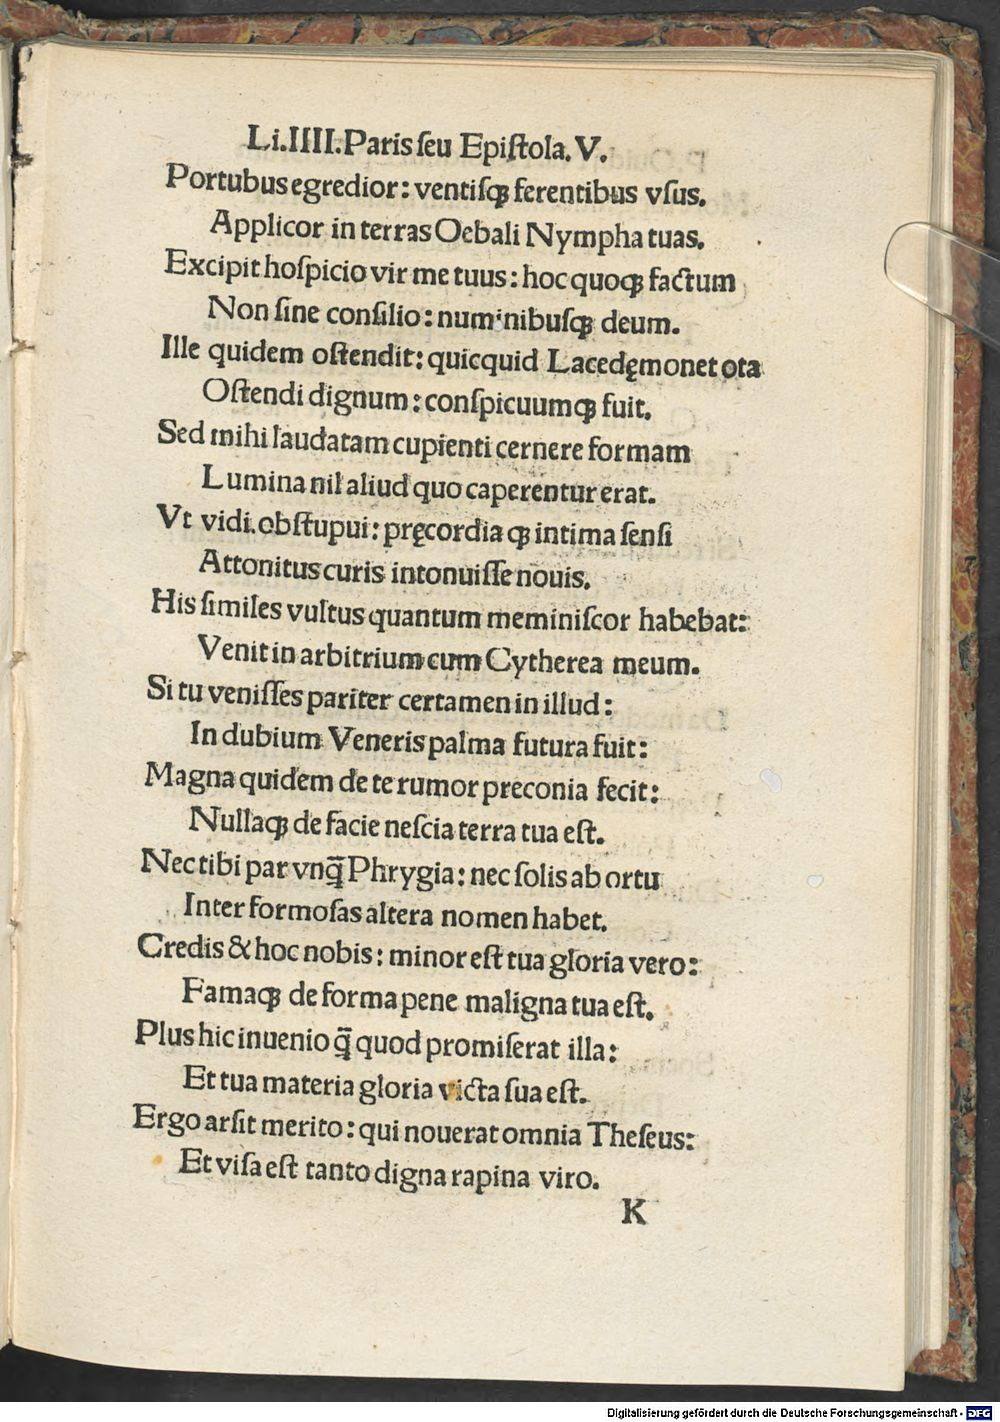 Li.IIII.Paris ſeu Epiſtola.V.
Portubus egredior: ventiſqꝫ ferentibus vſus.
Applicor in terras Oebali Nympha tuas.
Excipit hoſpicio vir me tuus: hoc quoqꝫ factum
Non ſine conſilio: numinibuſqꝫ deum.
Ille quidem oſtendit: quicquid Lacedęmone tota
Oſtendi dignum: conſpicuumqꝫ fuit.
Sed mihi laudatam cupienti cernere formam
Lumina nil aliud quo caperentur erat.
Vt vidi. obſtupui: pręcordia qꝫ intima ſenſi
Attonitus curis intonuiſſe nouis.
His ſimiles vultus quantum meminiſcor habebat:
Venit in arbitrium cum Cytherea meum.
Si tu veniſſes pariter certamen in illud:
In dubium Veneris palma futura fuit:
Magna quidem de te rumor preconia fecit:
Nullaqꝫ de facie neſcia terra tua eſt.
Nec tibi par vnq̃ Phrygia: nec ſolis ab ortu
Inter formoſas altera nomen habet.
Credis & hoc nobis: minor eſt tua gloria vero:
Famaqꝫ de forma pene maligna tua eſt.
Plus hic inuenio q̃ quod promiſerat illa:
Et tua materia gloria victa ſua eſt.
Ergo arſit merito: qui nouerat omnia Theſeus:
Et viſa eſt tanto digna rapina viro.
K
Digitalisierung gefördert durch die Deutsche Forschungsgemeinschaft - DFG